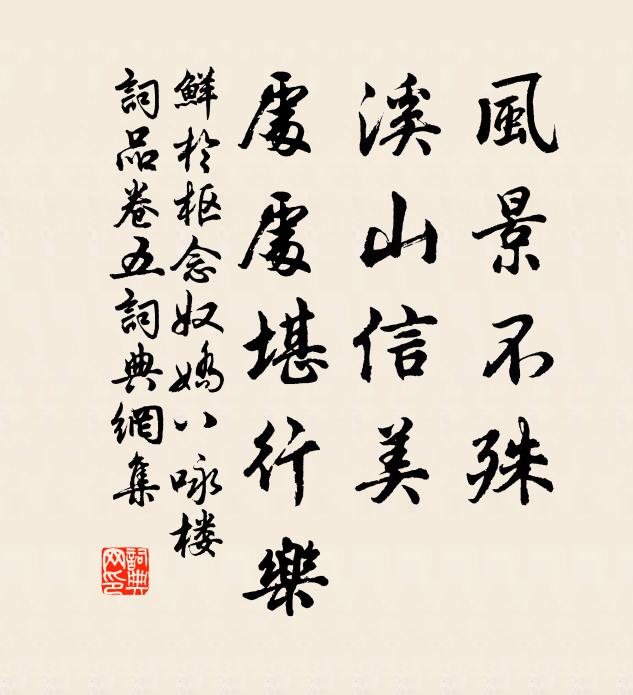 風景不殊
溪山信美
處處堪行樂
鮮於枢念奴嬌八咏楼
詞品卷五詞典網集
詞典網印